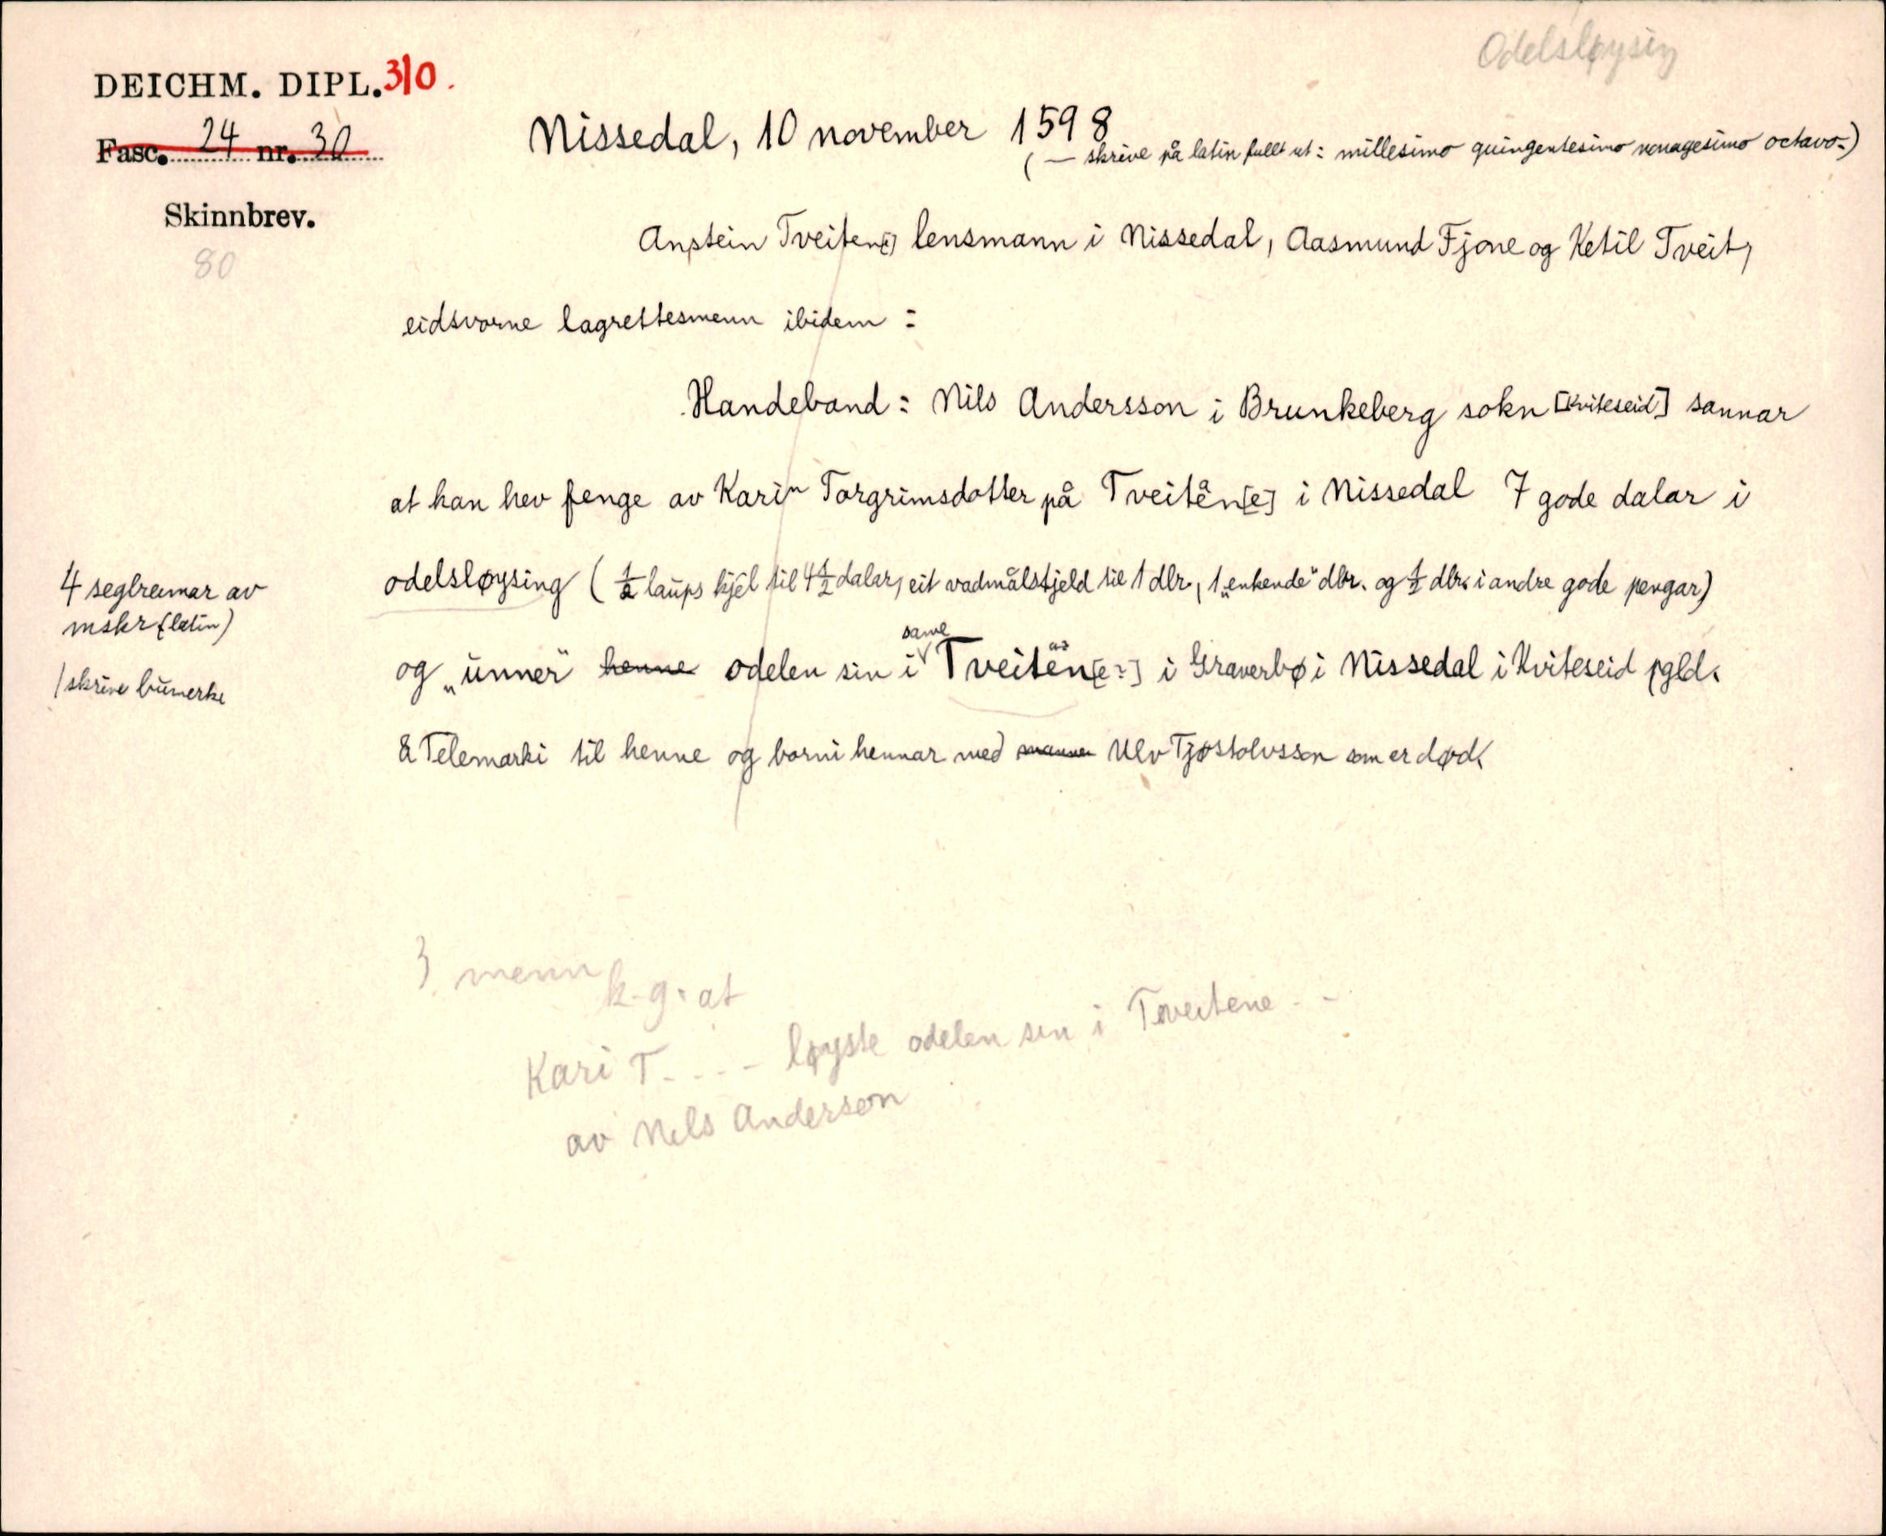 Odelsløysing
DEICHM. DIPL. 310.
Fasc. 24 nr. 30
Skinnbrev.
80
Nissedal, 10 november 1598
( — skrive på latin fullt ut: millesimo quingentesimo nonagesimo octavo-)
Anstein Tveiten[e] lensmann i Nissedal, Aasmund Fjone og Ketil Tveit,
eidsvorne lagrettesmenn ibidem:
Handeband: Nils Andersson i Brunkeberg sokn [Kviteseid] sannar
at han hev fenge av Karin Torgrimsdotter på Tveitån[e] i Nissedal 7 gode dalar i
odelsløysing (½ laups kjel til 4½ dalar, eit vadmålstjeld til 1 dlr, 1 „enkende" dlr. og ½ dlr. i andre gode pengar)
og „unner" henne odelen sin i same Tveitën[e?] i Graverbø i Nissedal i Kviteseid pgld.
& Telemarki til henne og borni hennar med mannen Ulv Tjostolvsson som er død.
4 seglreimar av
mskr (latin)
1 skrive bumerke
3 menn
k. g. at
Kari T. . . - løyste odelen sin i Tveitene - -
av Nils Anderson